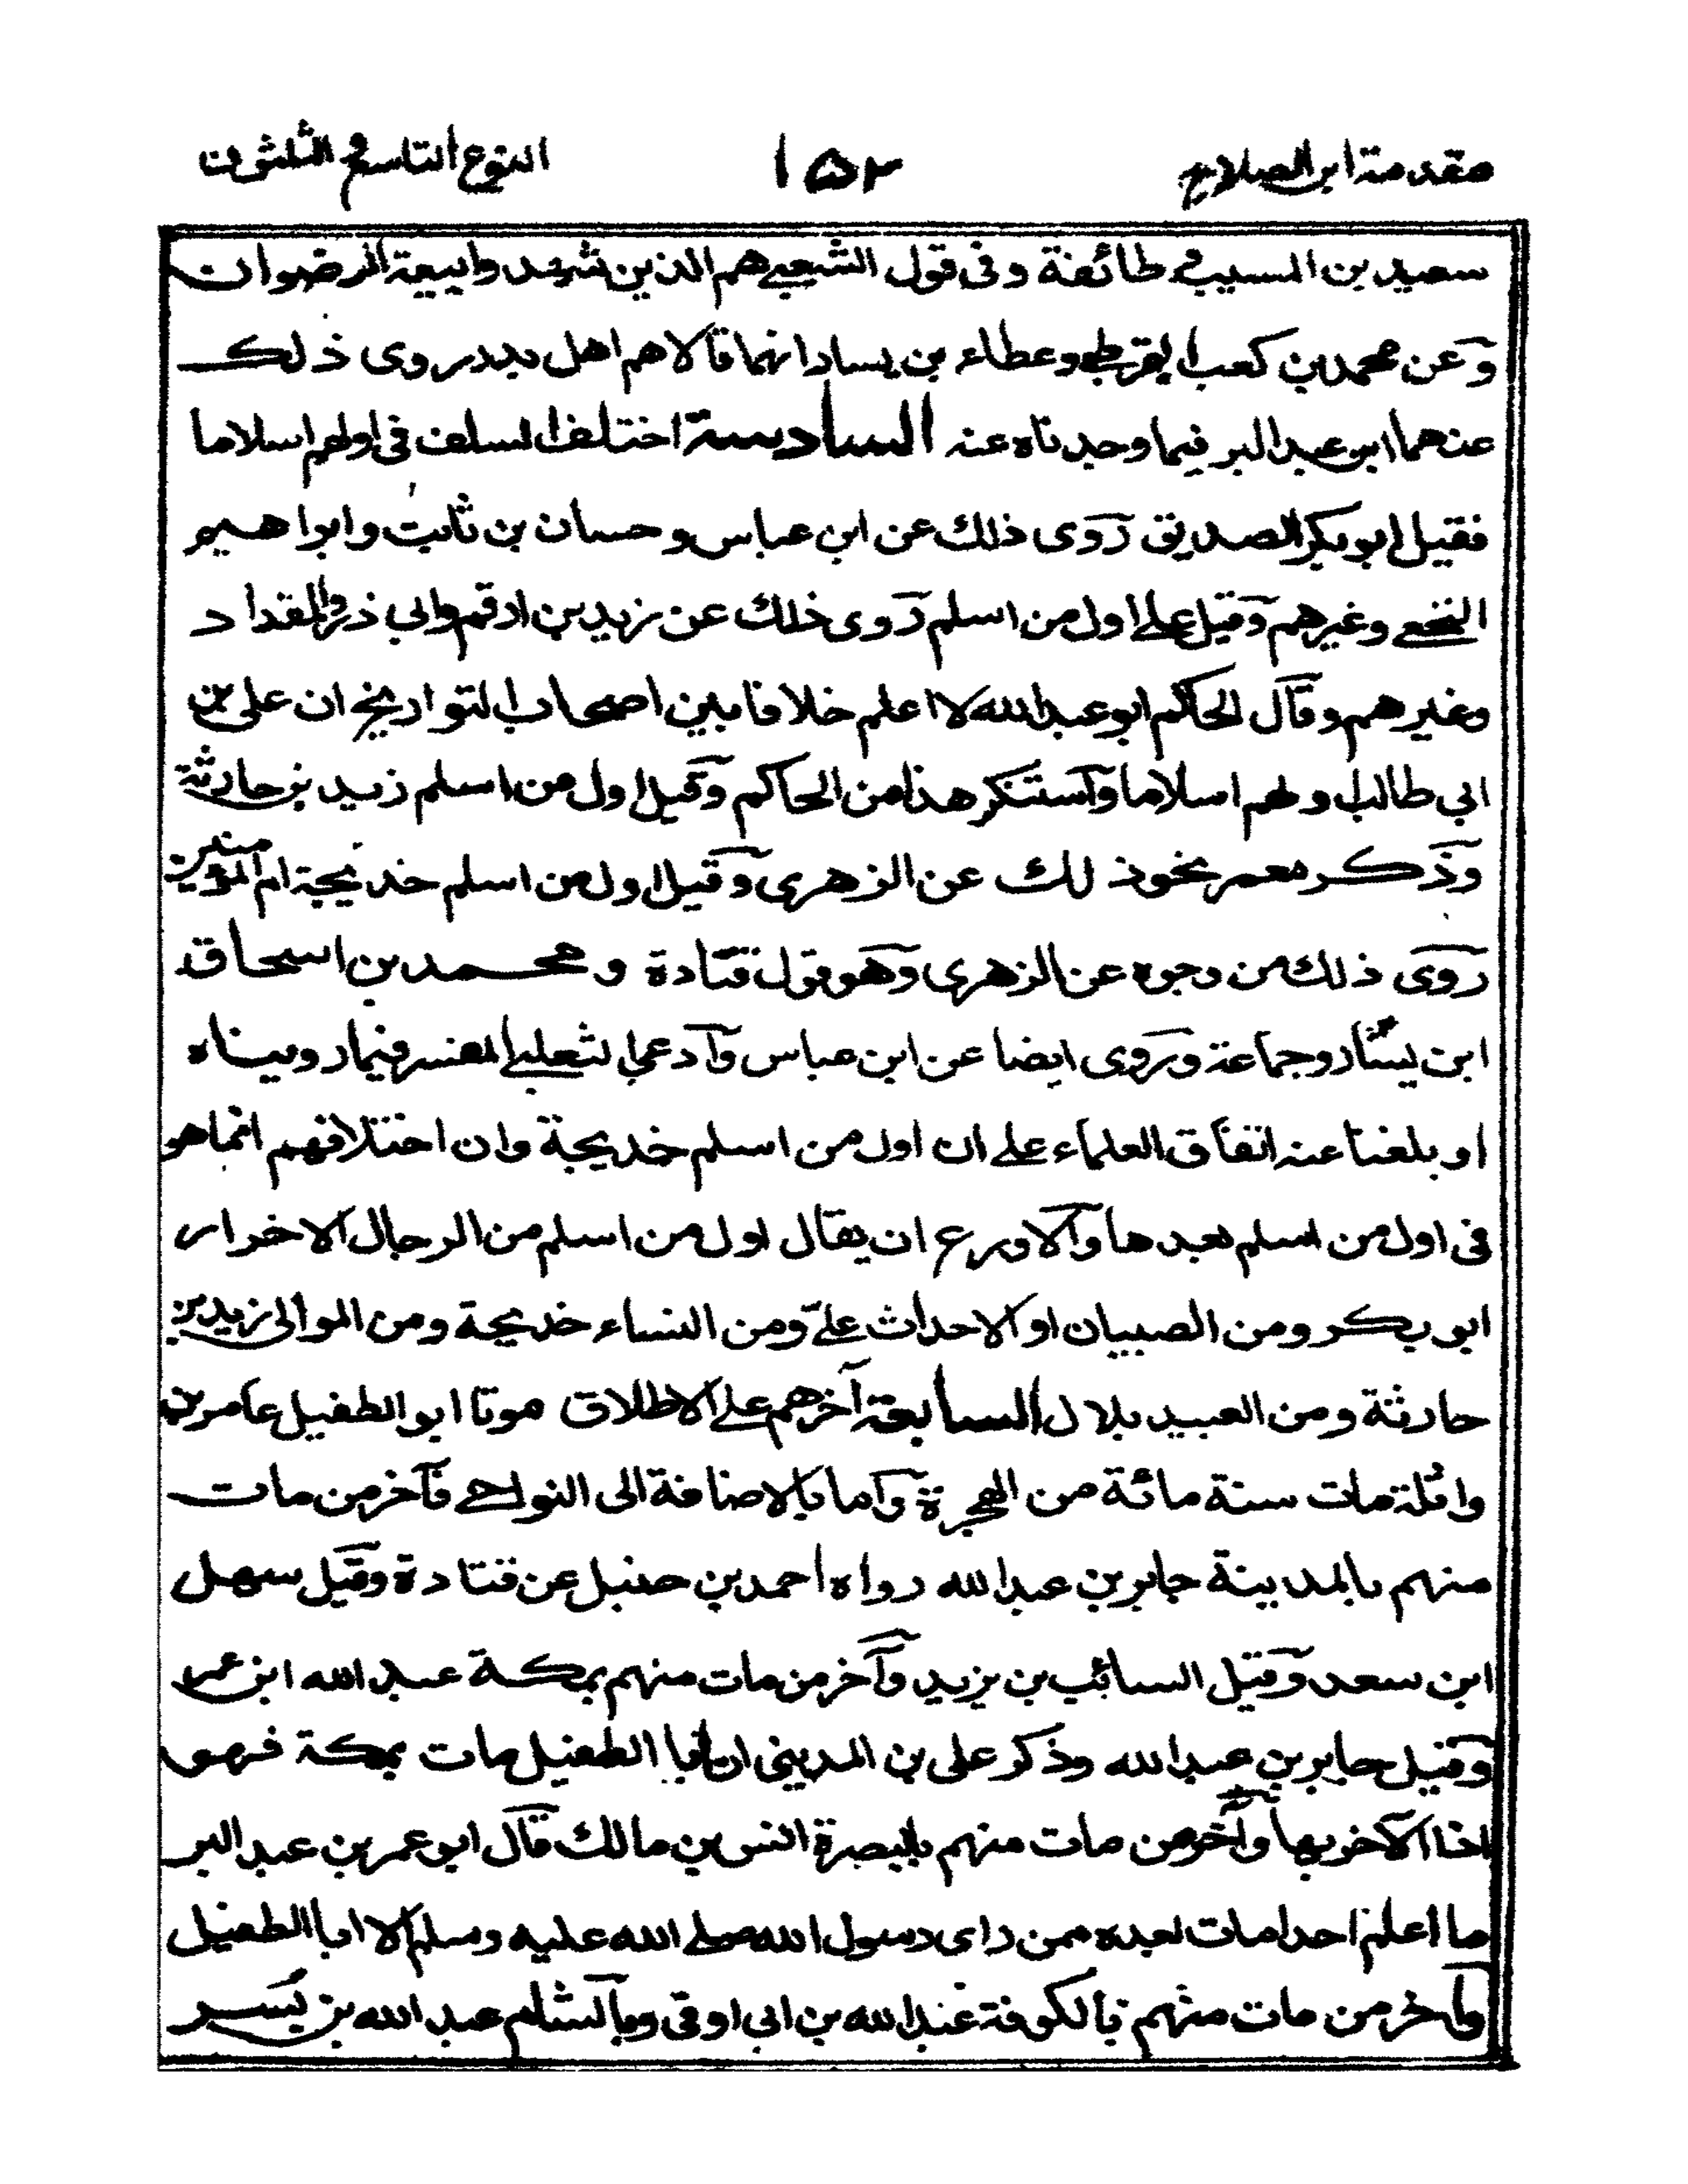 مقدمة ابن الصلاح ١٥٢ النوع التاسع و الثلثون
سعيد بن المسيب في طائفة وفى قول الشعبي هم الذين شهدوا بيعة الرضوان
وعن محمد بن كعب القرظي وعطاء بن يسار انهما قالا هم اهل بدر روى ذلك
عنهما ابن عبد البر فيما وجدناه عنه السادسة اختلف السلف فى اولهم اسلاما
فقيل ابو بكر الصديق روى ذلك عن ابن عباس و حسان بن ثابت وابراهيم
النخعي وغيرهم وقيل علي اول من اسلم روى ذلك عن زيد بن ارقم وابي ذر والمقداد
وغيرهم وقال الحاكم ابو عبد الله لا اعلم خلافا بين اصحاب التواريخ ان على بن
ابي طالب اولهم اسلاما واستنكر هذا من الحاكم وقيل اول من اسلم زيد بن حارثة
وذكر معمر نحو ذلك عن الزهرى وقيل اول من اسلم خديجة ام المؤمنين
روى ذلك من وجوه عن الزهرى وهو قول قتادة و محمد بن اسحاق
ابن يسار وجماعة وروى ايضا عن ابن عباس وادعى الثعلبي المفسر فيما رويناه
او بلغنا عنه اتفاق العلماء على ان اول من اسلم خديجة وان اختلافهم انما هو
فى اول من اسلم بعدها والاورع ان يقال اول من اسلم من الرجال الاحرار
ابو بكر ومن الصبيان او الاحداث علي ومن النساء خديجة ومن الموالى زيد بن
حارثة ومن العبيد بلال السابعة آخرهم على الاطلاق موتا ابو الطفيل عامر بن
واثلة مات سنة مائة من الهجرة واما بالاضافة الى النواحي فآخر من مات
منهم بالمدينة جابر بن عبد الله رواه احمد بن حنبل عن قتادة وقيل سهل
ابن سعد وقيل السائب بن يزيد وآخر من مات منهم بمكة عبد الله ابن عمر
وقيل جابر بن عبد الله وذكر على بن المدينى ان ابا الطفيل مات بمكة فهو
اذا الآخر بها وآخر من مات منهم بالبصرة انس بن مالك قال ابو عمر بن عبد البر
ما اعلم احدا مات بعده ممن راى رسول الله صلى الله عليه وسلم الا ابا الطفيل
وآخر من مات منهم بالكوفة عبد الله بن ابى اوفى وبالشام عبد الله بن بسر